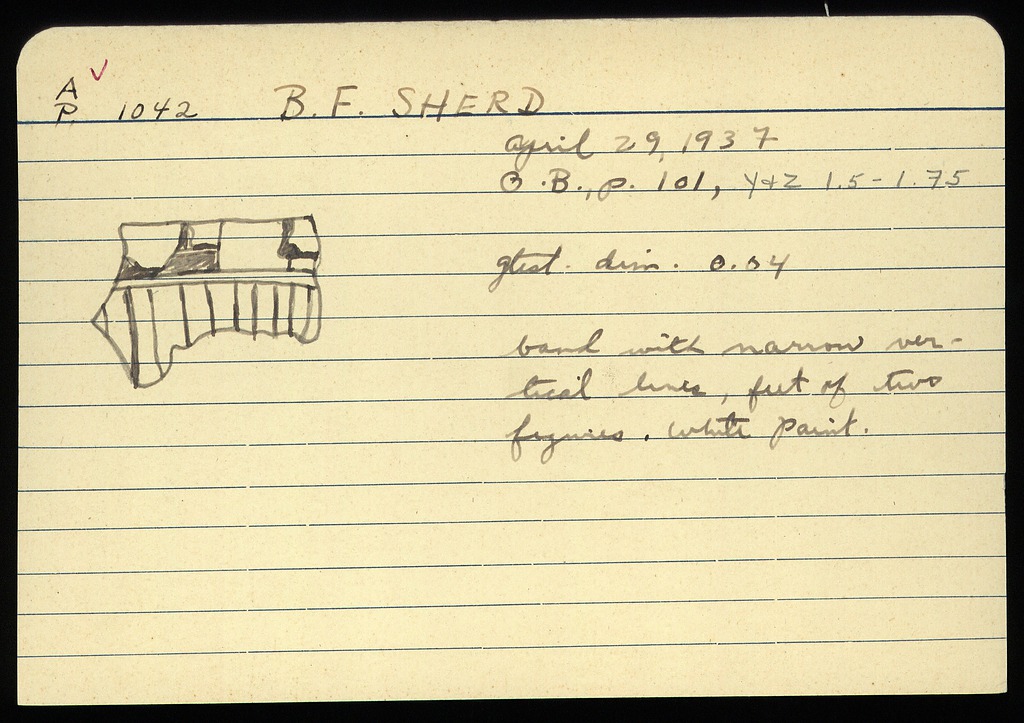 A
P 1042 B.F. SHERD
April 29, 1937
O.B., p. 101, Y+Z 1.5 - 1.75
gtest. dim. 0.04
band with narrow ver-
tical lines, feet of two
figures. White paint.